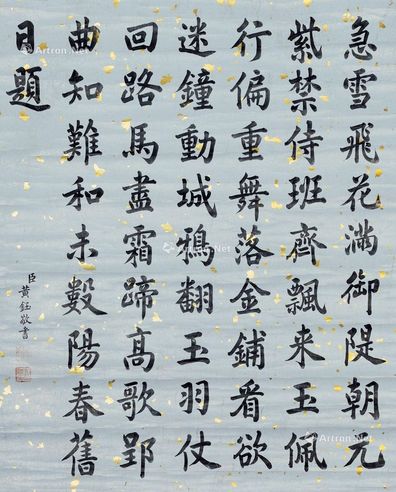 急雪飛花滿御隄朝元
紫禁侍班齊飄来玉佩
行偏重舞落金鋪看欲
迷鐘動城鴉翻玉羽仗
回路馬盡霜蹄髙歌郢
曲知難和未數陽春舊
日題
臣黄鈺敬書
Artron.Net